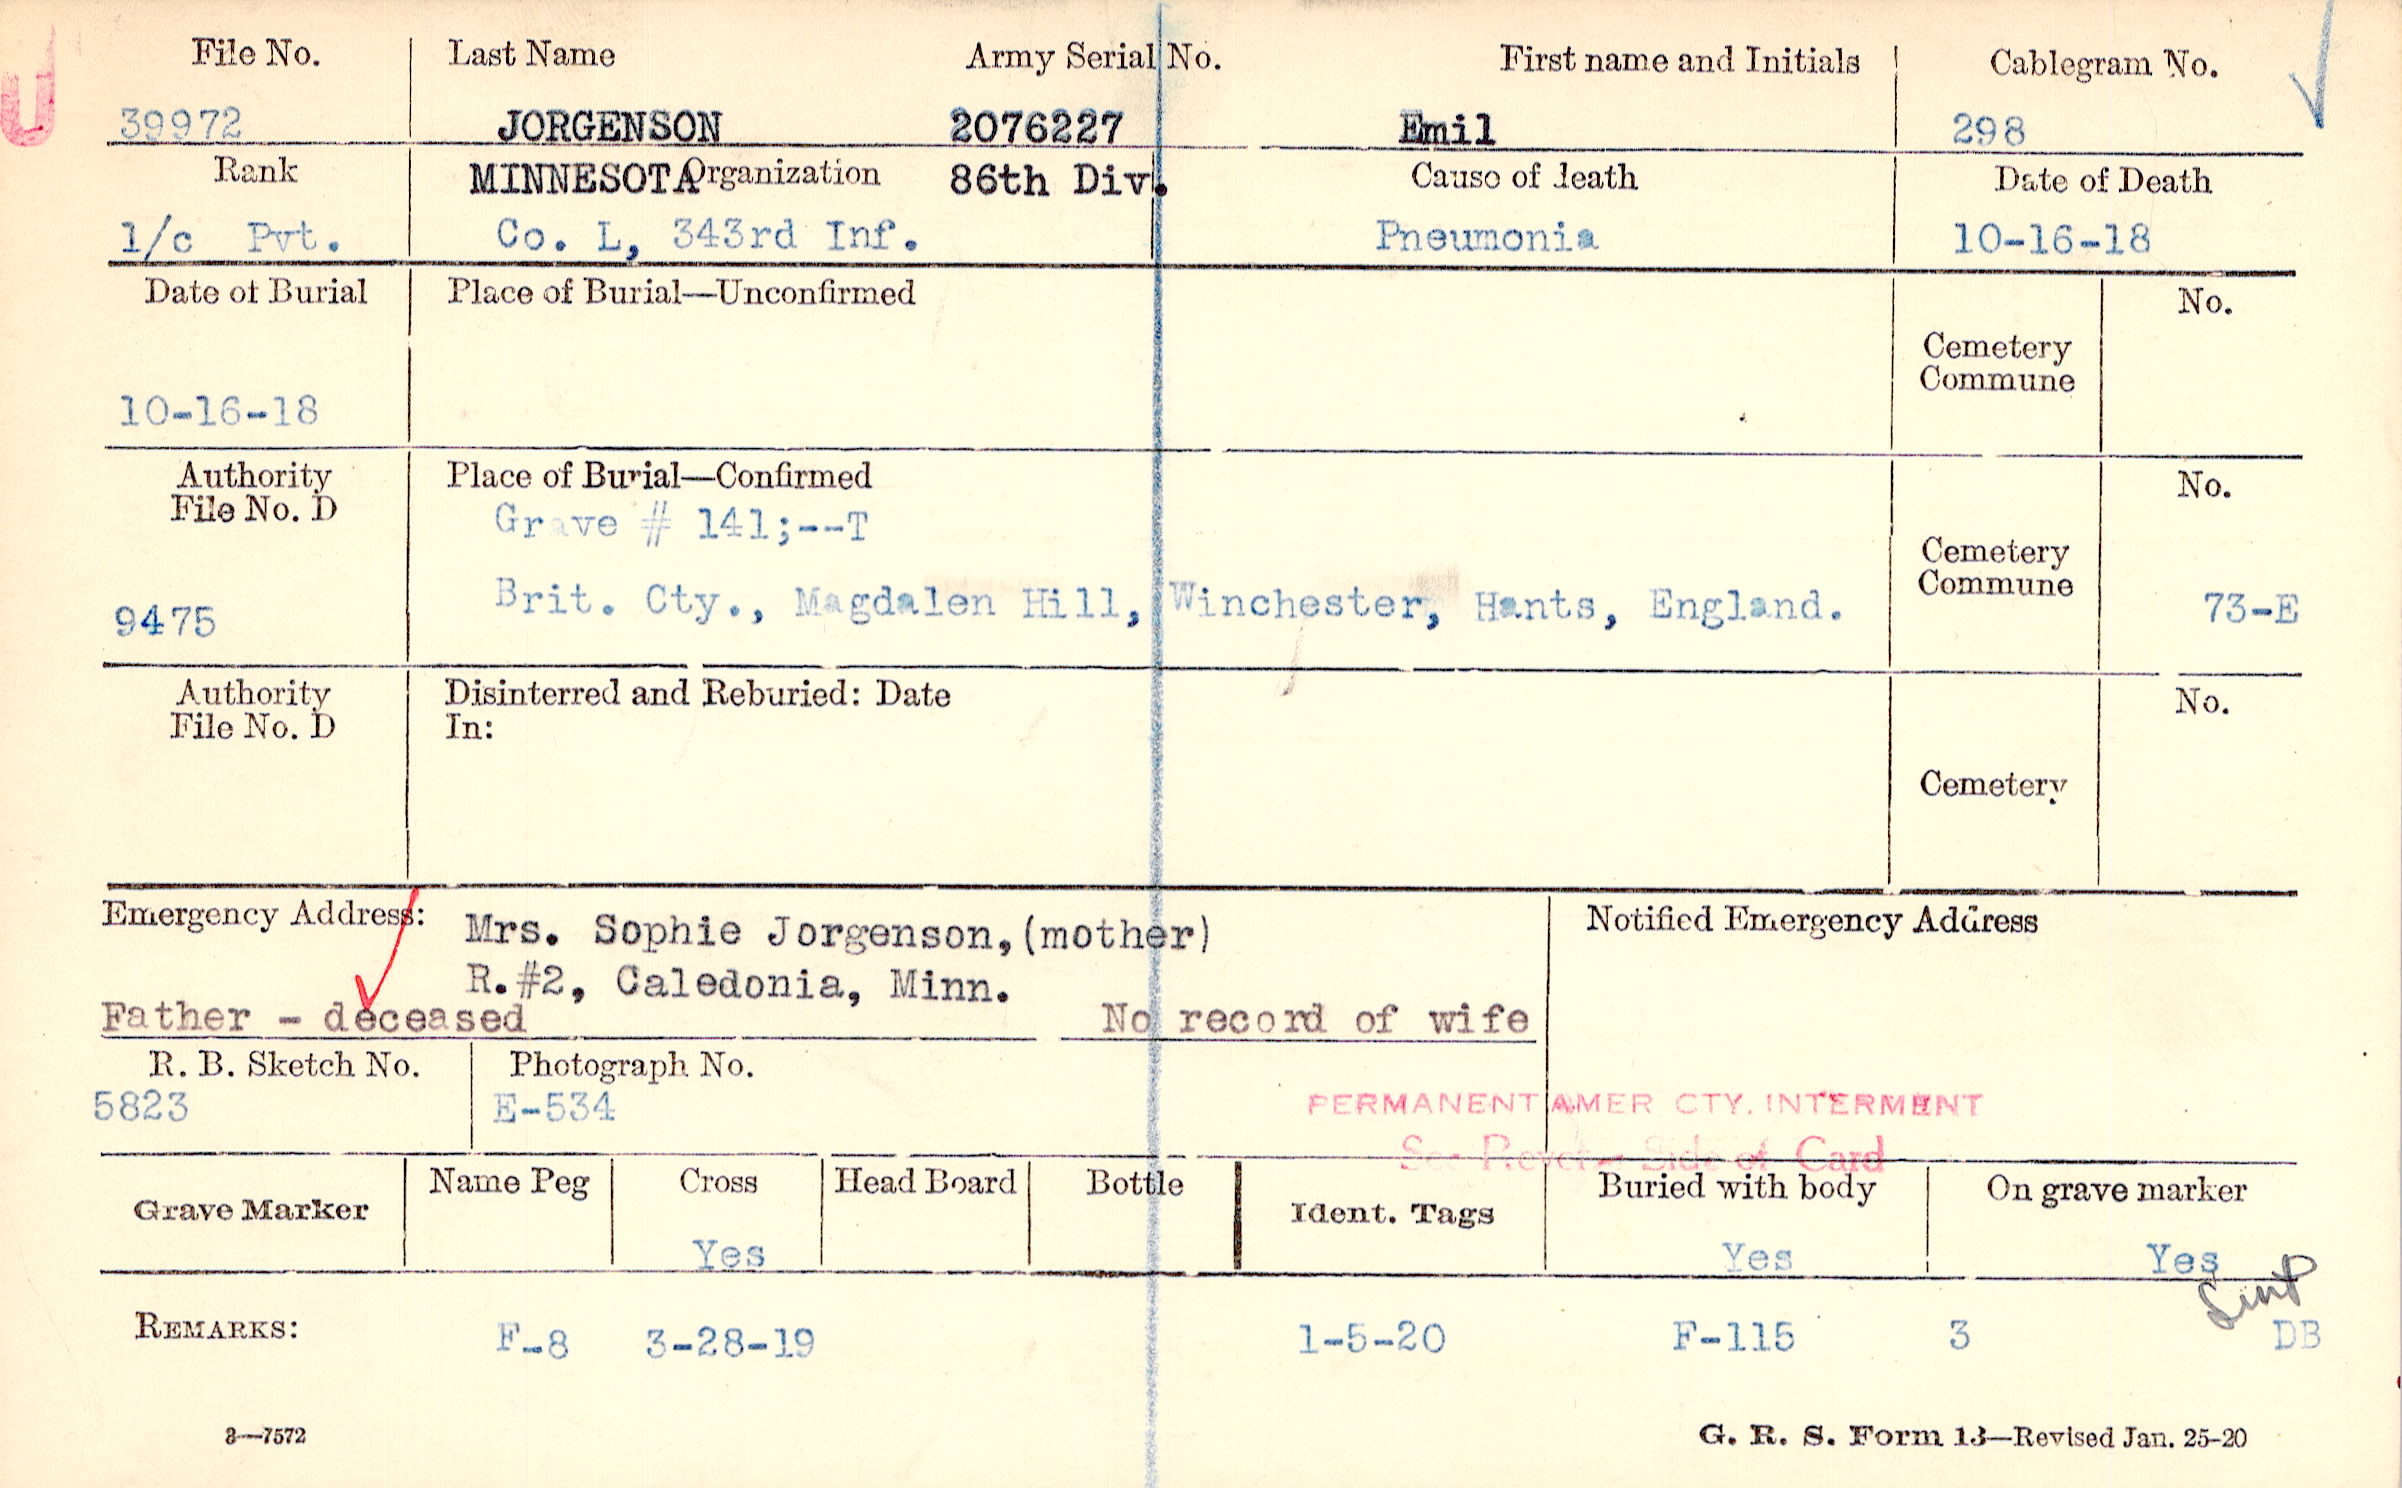 U
File No. Last Name Army Serial No. First name and Initials Cablegram No.
39972 JORGENSON 2076227 Emil 298
Rank MINNESOTA Organization 86th Div. Cause of death Date of Death
1/c Pvt. Co. L, 343rd Inf. Pneumonia 10-16-18
Date of Burial Place of Burial—Unconfirmed No.
Cemetery
Commune
10-16-18
Authority Place of Burial—Confirmed No.
File No. D
Grave # 141;--T
Cemetery
Commune
9475 Brit. Cty., Magdalen Hill, Winchester, Hants, England. 73-E
Authority Disinterred and Reburied: Date No.
File No. D In:
Cemetery
Emergency Address: Mrs. Sophie Jorgenson, (mother) Notified Emergency Address
R.#2, Caledonia, Minn.
Father - deceased No record of wife
R. B. Sketch No. Photograph No.
5823 E-534 PERMANENT AMER CTY. INTERMENT
See Reverse Side of Card
Grave Marker Name Peg Cross Head Board Bottle Ident. Tags Buried with body On grave marker
Yes Yes Yes
REMARKS: F-8 3-28-19 1-5-20 F-115 3 DB
3—7572 G. R. S. Form 13—Revised Jan. 25-20